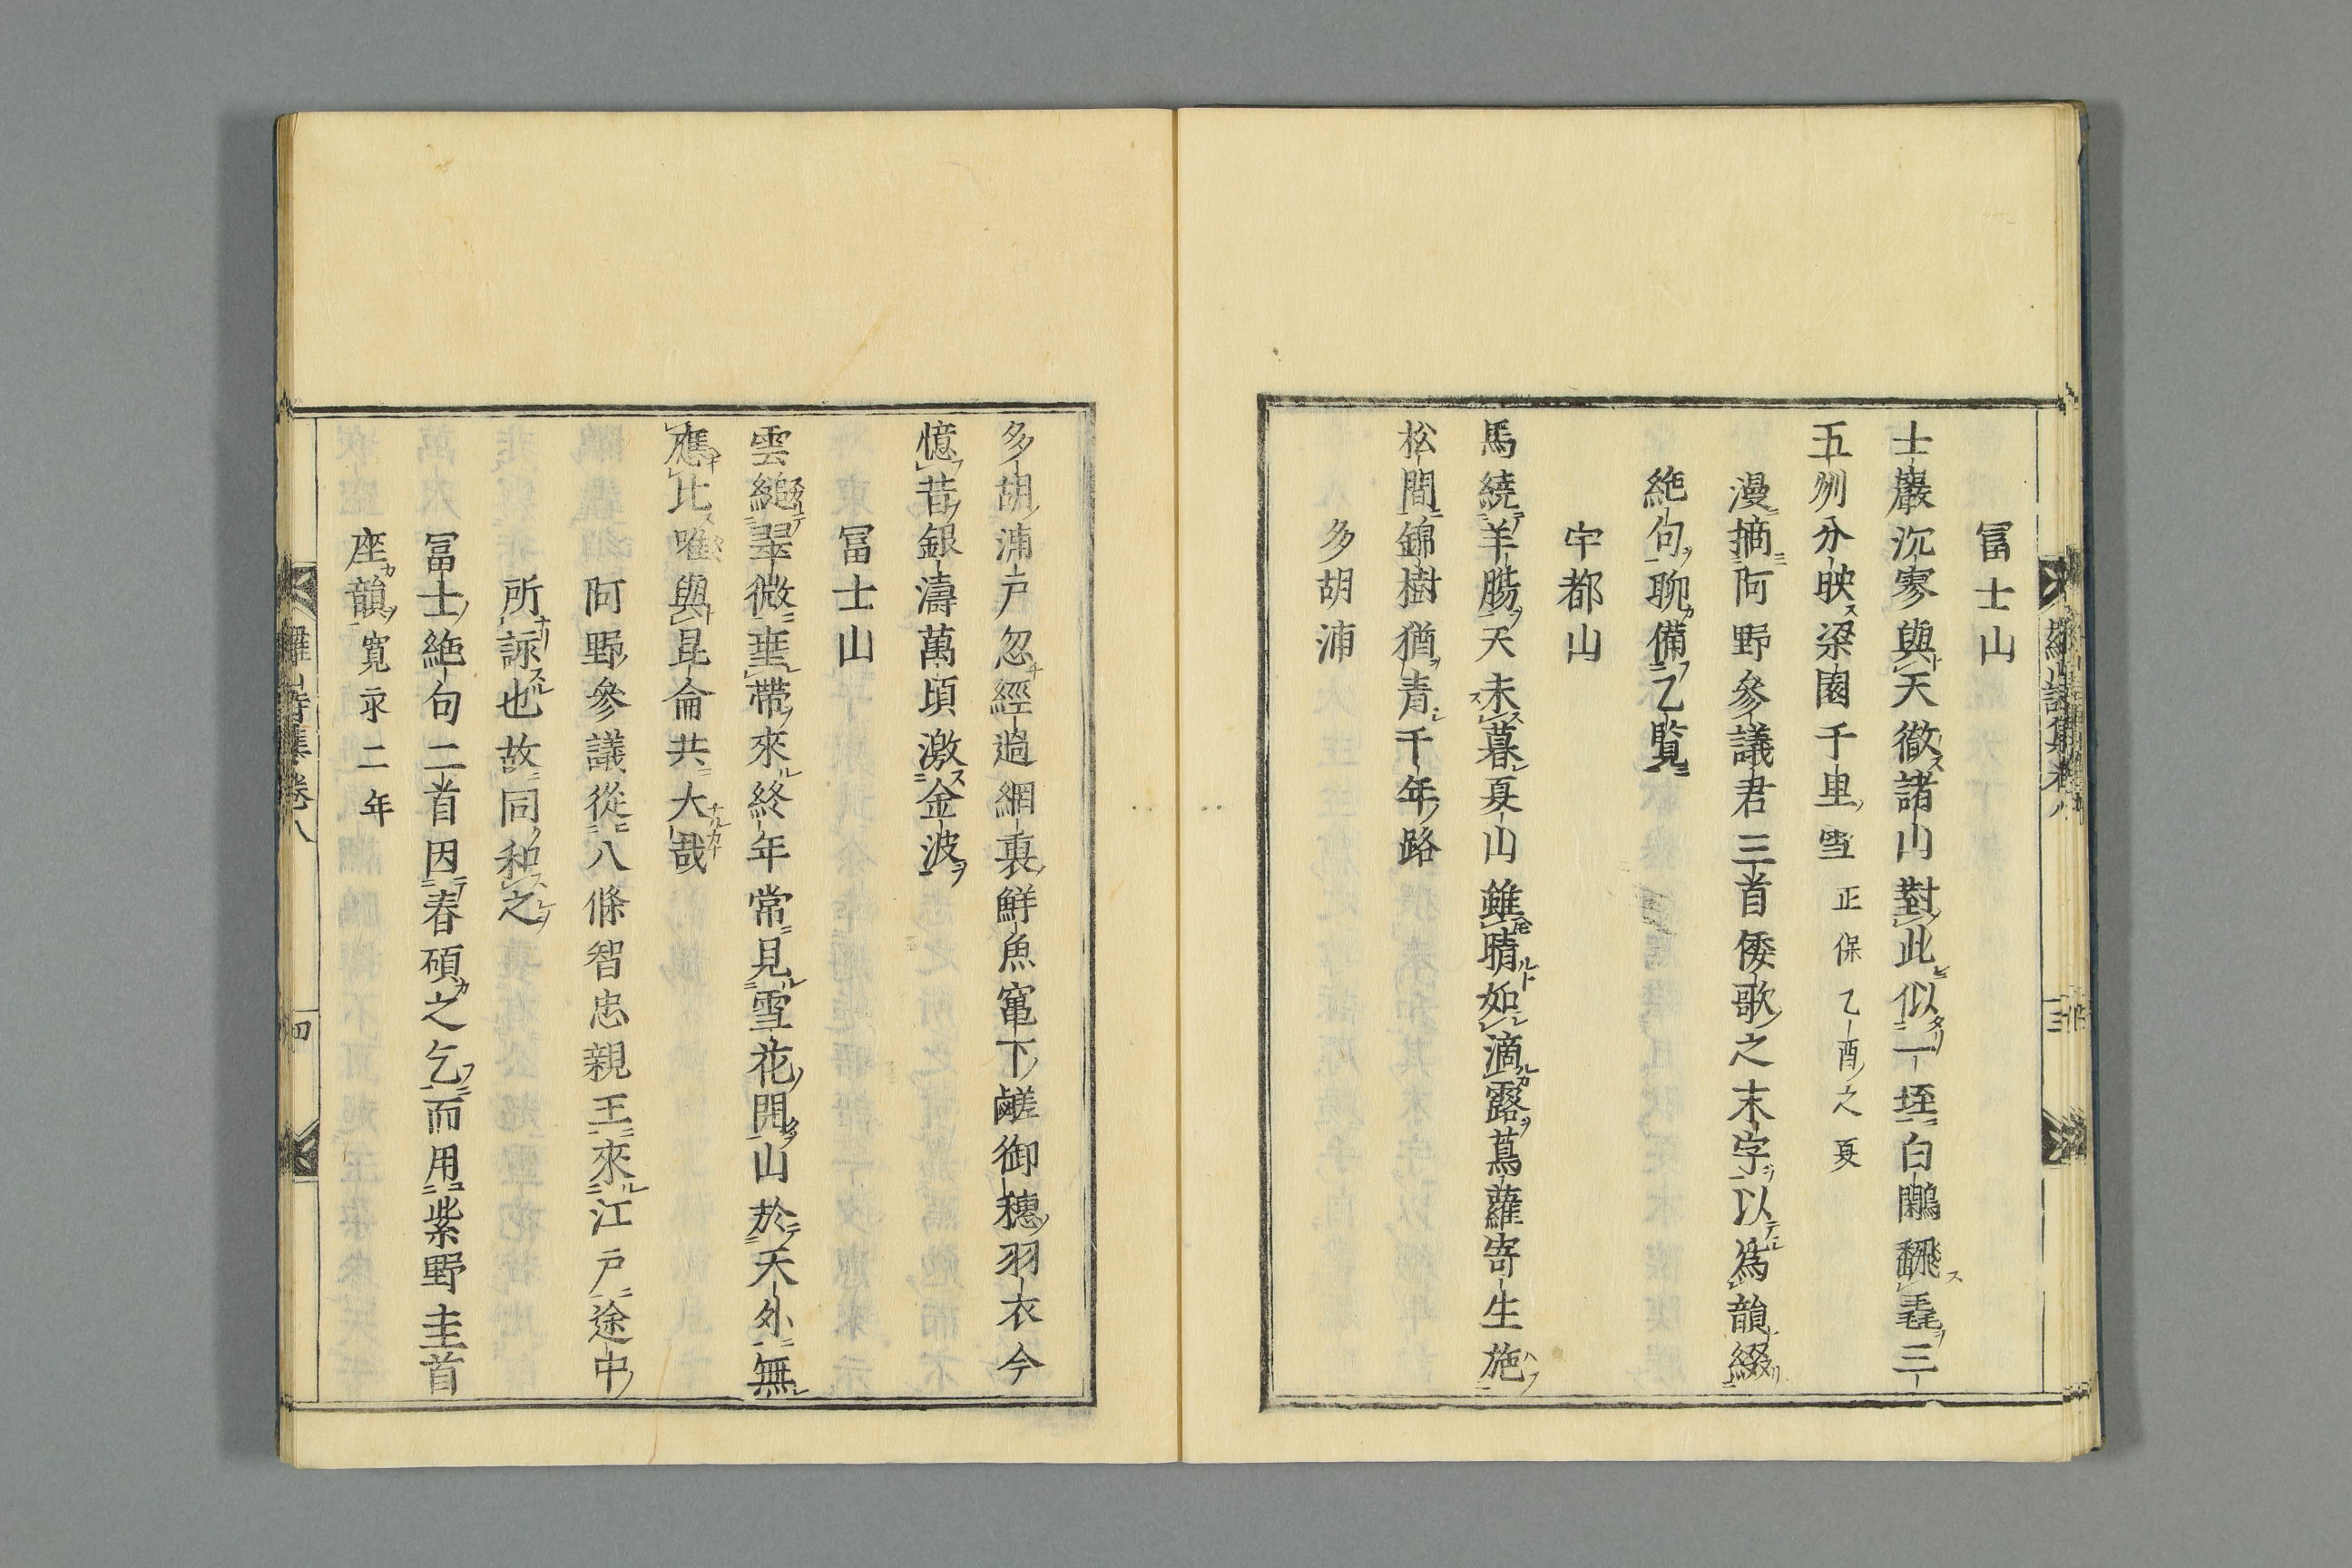 冨士山
士巖泬寥與天徹諸山對此似一垤白鷴飜毳三
五州分映梁園千里雪正保乙酉之夏
漫摘阿野參議君三首倭歌之末字以爲韻綴
絶句聊備乙覧
宇都山
馬繞羊膓天未暮夏山雖晴如滴露蔦蘿寄生施
松間錦樹猶青千年路
多胡浦
多胡浦戸忽經過網裏鮮魚竃下鹺御穗羽衣今
憶昔銀濤萬頃激金波
冨士山
雲繞翠微垂帶來終年常見雪花開山於天外無
應比唯與昆侖共大哉
阿野參議從八條智忠親王來江戸途中
所詠也故同和之
冨士絶句二首因春碩之乞而用紫野圭首
座韻寛永二年
羅山詩集卷八
三
四